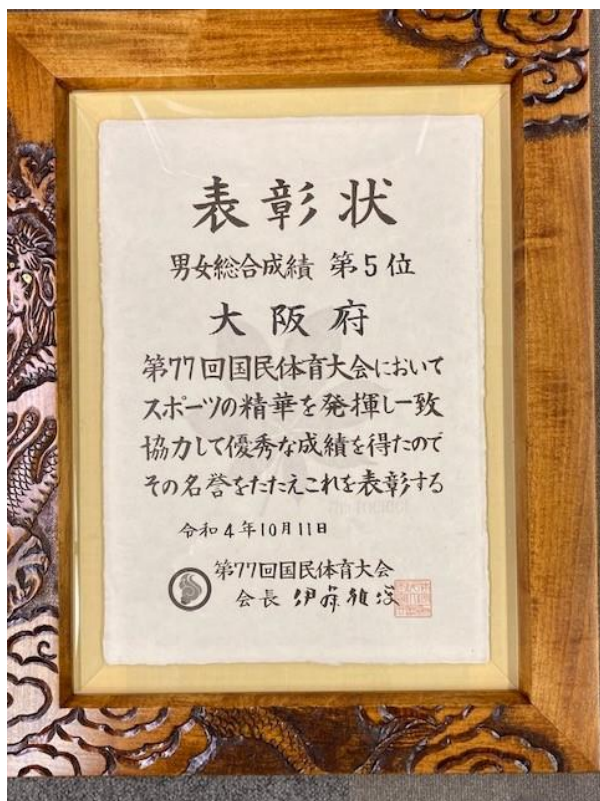 表彰状
男女総合成績 第5位
大阪府
第77回国民体育大会において
スポーツの精華を発揮し一致
協力して優秀な成績を得たので
その名誉をたたえこれを表彰する
令和4年10月11日
第77回国民体育大会
会長 伊藤雅俊